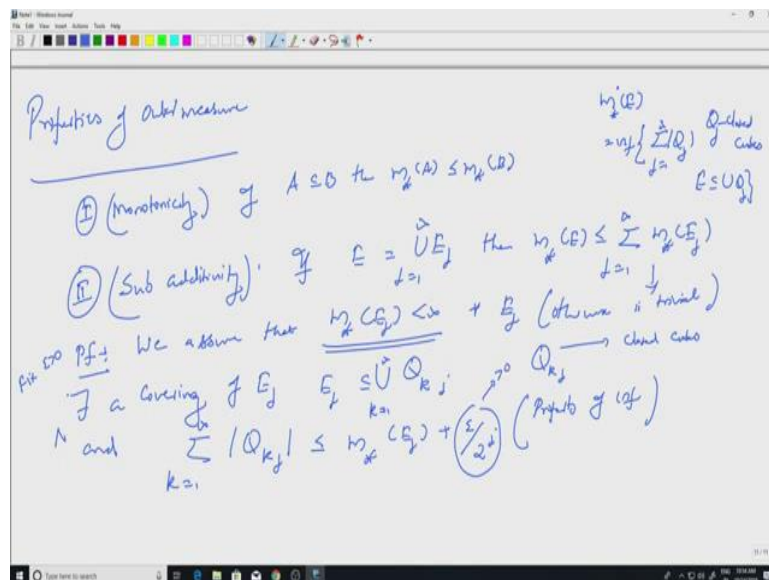 Note1 - Windows Journal
File Edit View Insert Actions Tools Help
Properties of outer measure
m_*(E)
= inf { ∑_{j=1}^∞ |Q_j| Q_j closed cubes
E ⊆ ∪Q_j }
(I) (Monotonicity) If A ⊆ B then m_*(A) ≤ m_*(B)
(II) (Sub additivity): If E = ∪_{j=1}^∞ E_j then m_*(E) ≤ ∑_{j=1}^∞ m_*(E_j)
Fix ε>0 Pf:- We assume that m_*(E_j) < ∞ ∀ E_j (otherwise is trivial)
∃ a covering of E_j E_j ⊆ ∪_{k=1}^∞ Q_{kj} Q_{kj} → closed cubes
and ∑_{k=1}^∞ |Q_{kj}| ≤ m_*(E_j) + ε/2^j → >0 (Property of inf)
11/11
Type here to search
ENG